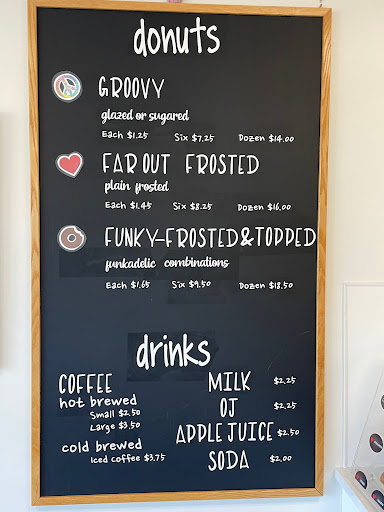 donuts
GROOVY
glazed or sugared
Each $1.25 Six $7.25 Dozen $14.00
FAR OUT FROSTED
plain frosted
Each $1.45 Six $8.25 Dozen $16.00
FUNKY-FROSTED&TOPPED
funkadelic combinations
Each $1.65 Six $9.50 Dozen $18.50
drinks
COFFEE
hot brewed
Small $2.50
Large $3.50
cold brewed
Iced coffee $3.75
MILK $2.25
OJ $2.25
APPLE JUICE $2.50
SODA $2.00